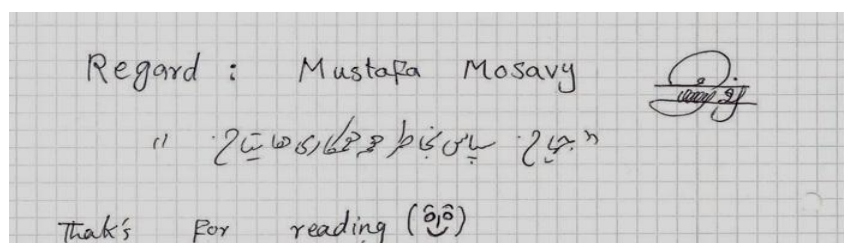 Regard : Mustafa Mosavy
" سپاس بخاطر همکاری هایتان "
Thak's For reading